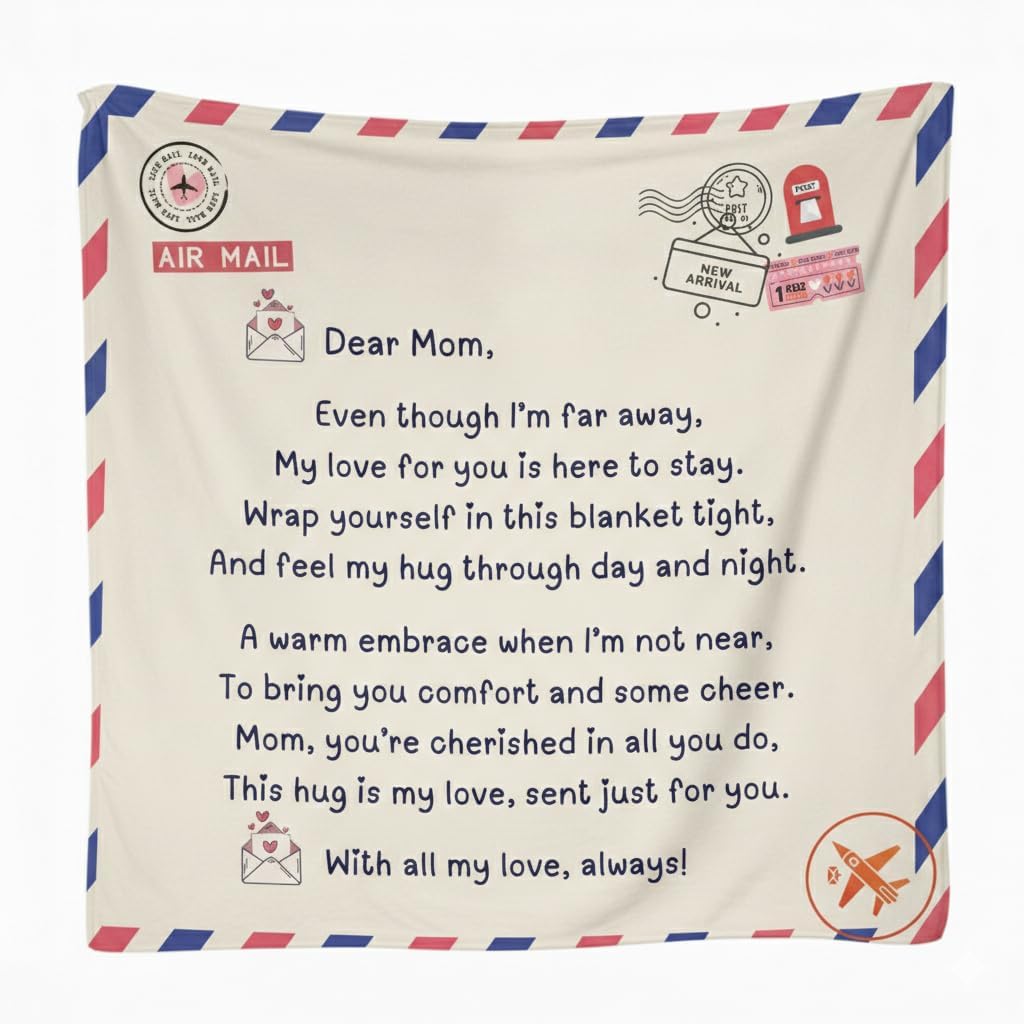 AIR MAIL
POST
NEW
ARRIVAL
POST
1
Dear Mom,
Even though I'm far away,
My love for you is here to stay.
Wrap yourself in this blanket tight,
And feel my hug through day and night.
A warm embrace when I'm not near,
To bring you comfort and some cheer.
Mom, you're cherished in all you do,
This hug is my love, sent just for you.
With all my love, always!